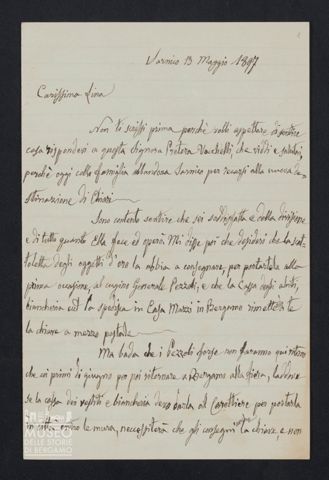 Sarnico 13 Maggio 1897
Carissima Lina
Non ti scrissi prima perchè volli aspettare di sentire
cosa rispondevi a questa Signora Pretora Vacchelli, che vidi e salutai,
perchè oggi colla famiglia abbandona Sarnico per recarsi alla nuova de-
stinazione di Chiari
Sono contento sentire che sei soddisfatta della divisione
e di tutto quanto Ella fece ed operò. Mi disse poi che desideri che la sca-
toletta degli oggetti d'oro la abbia a consegnare, per portartela alla
prima occasione, al cugino Generale Pezzoli, e che la Cassa degli abiti,
biancheria la spedisca in Casa Mazzi in Bergamo rimettendo te
la chiave a mezzo postale
Ma bada che i Pezzoli forse non faranno qui ritorno
che coi primi di giugno per poi ritornare a Bergamo alla fiera, laddove
se la cassa dei vestiti e biancheria devo darla al Carrettiere per portarla
in città entro le mura, necessiterà che gli consegni la chiave, e non
MUSEO
DELLE STORIE
DI BERGAMO